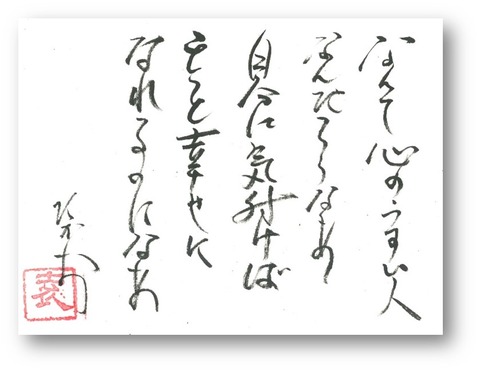 なんて心のうすい人
なんだろうなあ
自分に気付けば
もっと幸せに
なれるのになあ